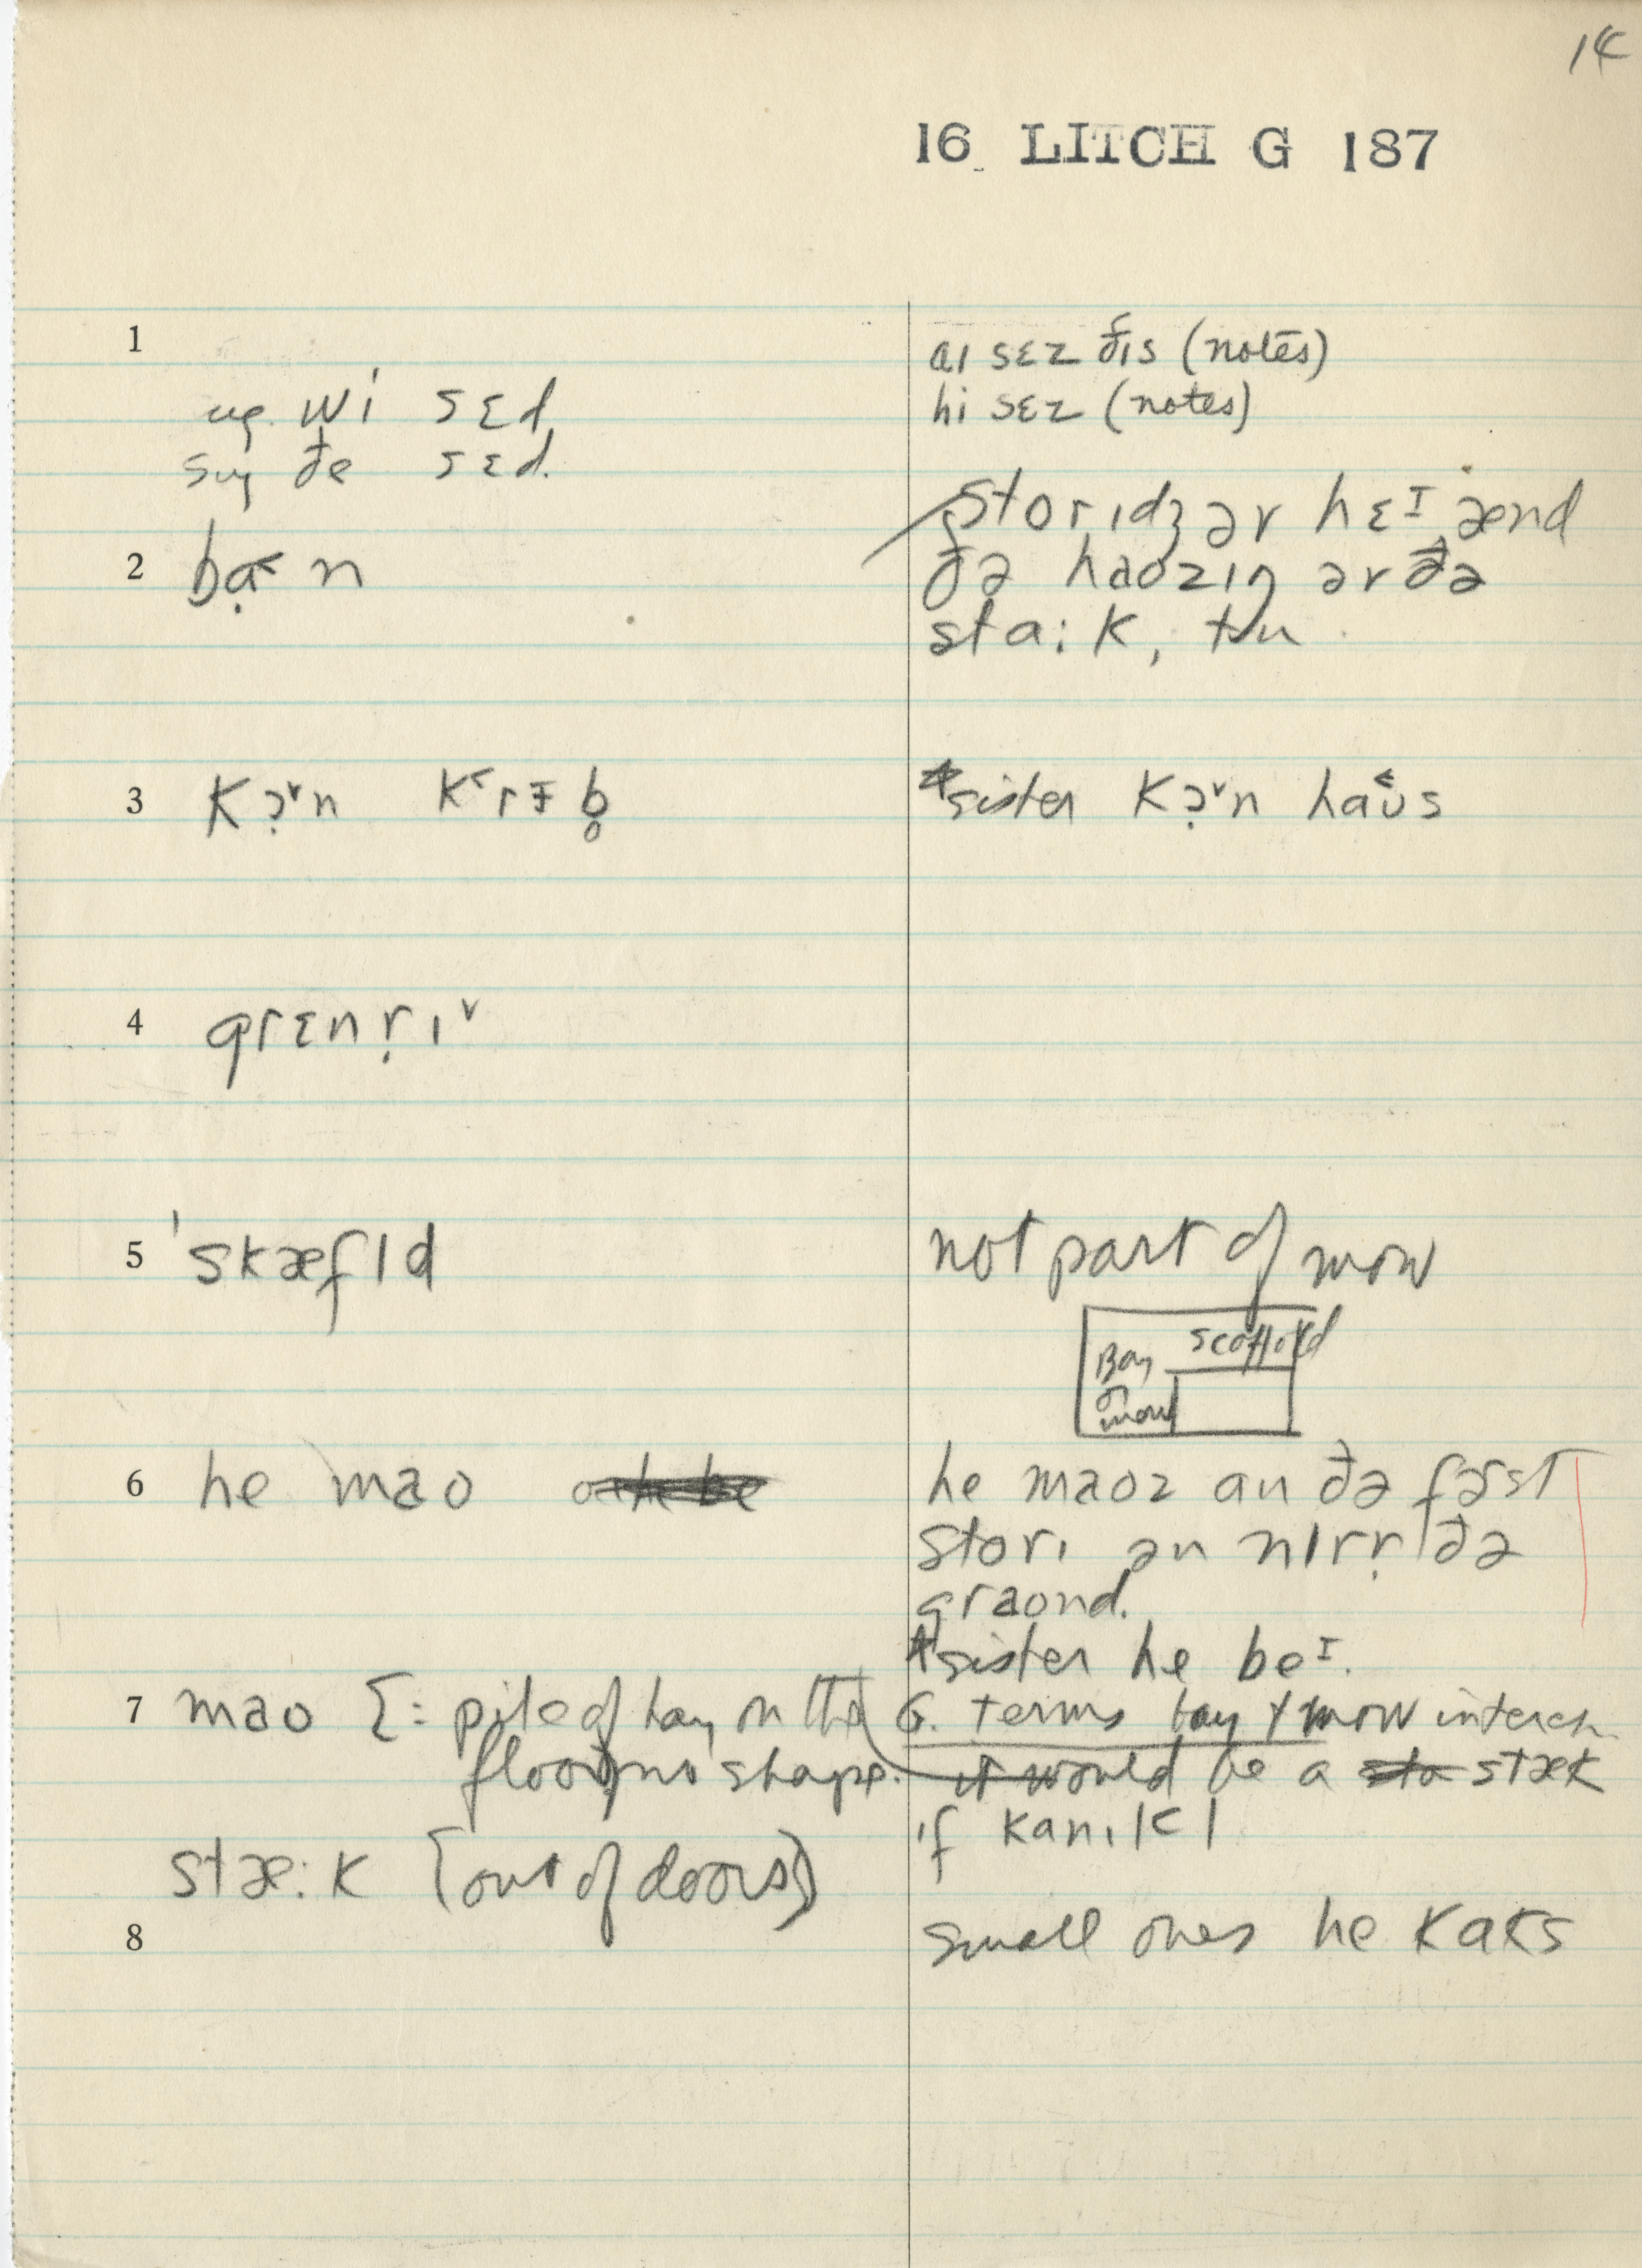 14
16 LITCH G 187
1
aɪ sɛz ðɪs (notes)
hi sɛz (notes)
wi sɛd
ðe sɛd.
2 bạ˂n
storɪdʒ ər hɛᴵ ænd
ðə haʊzɪŋ ər ðə
sta:k, tu
3 kɔ̣˅n k˂rɪb̥
*sister kɔ̣˅n haʊ˂s
4 grɛnṛɪ˅
5 ˈskæfld
not part of mow
scaffold
Bay
or
mow
6 he maʊ
he maʊz an ðə fəst
storɪ ən nɪrṛ ðə
graʊnd.
*sister he beᴵ.
7 maʊ [= pile of hay on the
floor, no shape.
G. terms bay + mow interch
it would be a stæk
if kanɪkl
stæ:k [out of doors]
8
small ones he kaks